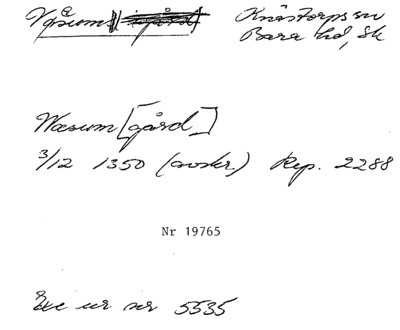 Væsum [gård] Knästorps sn
Bara hd, Sk
Wæsum [gård]
3/12 1350 (avskr.) Rep. 2288
Nr 19765
Exc ur nr 5535